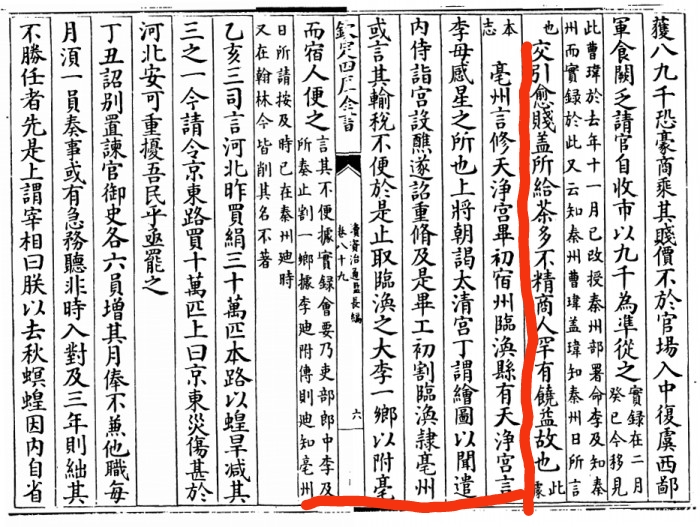 獲八九千恐豪商乘其賤價不於官場入中復虞西鄙
軍食闕乏請官自收市以九千為準從之實錄在二月
癸巳今移見
此曹瑋於去年十一月已改授秦州部署命李及知秦
州而實錄於此又云知秦州曹瑋蓋瑋知秦州日所言
也 交引愈賤蓋所給茶多不精商人罕有饒益故也此
據
本
志 亳州言修天浄宮畢初宿州臨渙縣有天浄宮言
李母感星之所也上將朝謁太清宮丁謂繪圖以聞遣
内侍詣宮設醮遂詔重脩及是畢工初割臨渙隸亳州
或言其輸稅不便於是止取臨渙之大李一鄉以附亳
欽定四庫全書
續資治通鑑長編
卷八十九
六
而宿人便之言其不便據實錄會要乃吏部郎中李及
所奏止割一鄉據李廸附傳則廸知亳州
日所請按及時已在秦州廸時
又在翰林今皆削其名不著
乙亥三司言河北昨買絹三十萬匹本路以蝗旱減其
三之一今請令京東路買十萬匹上曰京東災傷甚於
河北安可重擾吾民乎亟罷之
丁丑詔別置諫官御史各六員增其月俸不兼他職每
月須一員奏事或有急務聽非時入對及三年則絀其
不勝任者先是上謂宰相曰朕以去秋螟蝗因内自省